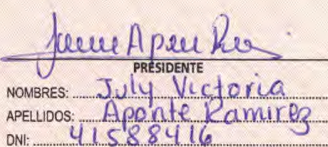 PRESIDENTE
NOMBRES: July Victoria
APELLIDOS: Aponte Ramirez
DNI: 41588416